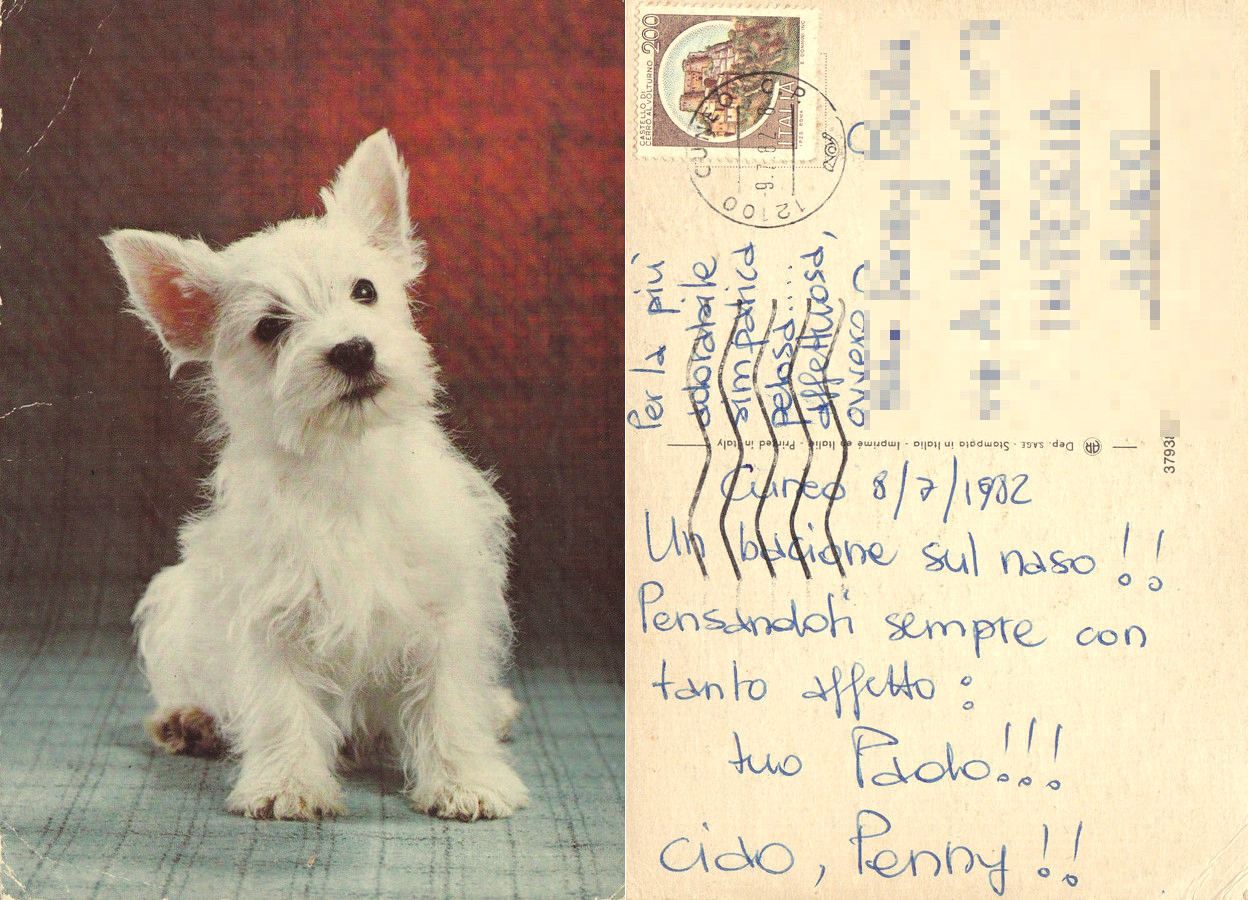 200
CASTELLO DI
CERRO AL VOLTURNO
ITALIA
CUNEO
9.7.82
12100
Per la più
adorabile
simpatica
pelosa....
affettuosa,
ovvero
Dep. SAGE - Stampata in Italia - Imprimé en Italie - Printed in Italy
3793
Cuneo 8/7/1982
Un bacione sul naso!!
Pensandoti sempre con
tanto affetto:
tuo Paolo!!!
ciao, Penny!!